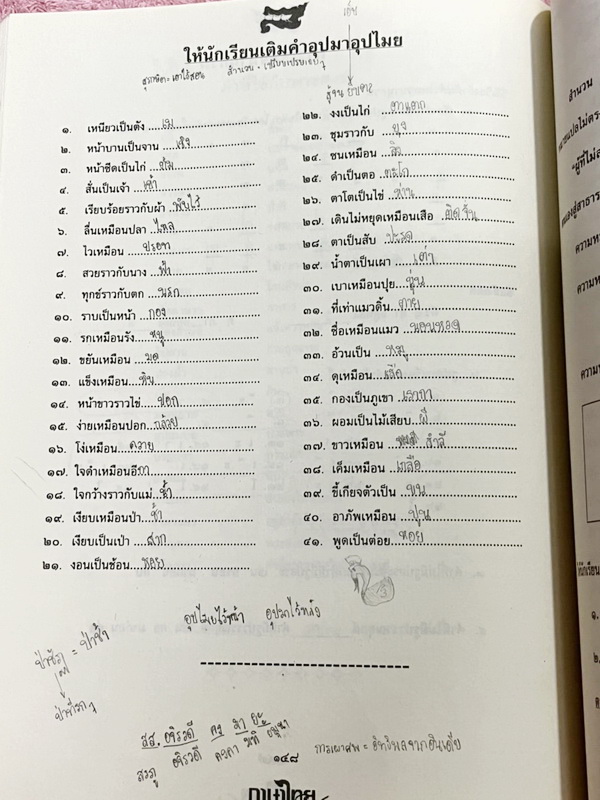 ให้นักเรียนเติมคำอุปมาอุปไมย
สำนวน
๑. เหนียวเป็นตัง เม
๒. หน้าบานเป็นจาน เชิง
๓. หน้าซีดเป็นไก่ ต้ม
๔. สั่นเป็นเจ้า เข้า
๕. เรียบร้อยราวกับผ้า พับไว้
๖. ลื่นเหมือนปลา ไหล
๗. ไวเหมือน ปรอท
๘. สวยราวกับนาง ฟ้า
๙. ทุกข์ราวกับตก นรก
๑๐. ราบเป็นหน้า กอง
๑๑. รกเหมือนรัง หนู
๑๒. ขยันเหมือน มด
๑๓. แข็งเหมือน หิน
๑๔. หน้าขาวราวไข่ ปอก
๑๕. ง่ายเหมือนปอก กล้วย
๑๖. โง่เหมือน ควาย
๑๗. ใจดำเหมือนอีกา
๑๘. ใจกว้างราวกับแม่ น้ำ
๑๙. เงียบเหมือนป่า ช้า
๒๐. เงียบเป็นเป่า สาก
๒๑. งอนเป็นช้อน หอย
๒๒. งงเป็นไก่ ตาแตก
๒๓. ชุมราวกับ ยุง
๒๔. ซนเหมือน ลิง
๒๕. ดำเป็นตอ ตะโก
๒๖. ตาโตเป็นไข่ ห่าน
๒๗. เดินไม่หยุดเหมือนเสือ ติดจั่น
๒๘. ตาเป็นสับ ปะรด
๒๙. น้ำตาเป็นเผา เต่า
๓๐. เบาเหมือนปุย นุ่น
๓๑. ที่เท่าแมวดิ้น ตาย
๓๒. ชื่อเหมือนแมว นอนหวด
๓๓. อ้วนเป็น หมู
๓๔. ดุเหมือน เสือ
๓๕. กองเป็นภูเขา เลากา
๓๖. ผอมเป็นไม้เสียบ ผี
๓๗. ขาวเหมือน สำลี
๓๘. เค็มเหมือน เกลือ
๓๙. ขี้เกียจตัวเป็น ขน
๔๐. อาภัพเหมือน ปูน
๔๑. พูดเป็นต่อย หอย
อุปไมยไว้หน้า อุปมาไว้หลัง
= ป่าช้า
๑๔๘
การเผาศพ = อิทธิพลจากอินเดีย
ภาษาไทย
สำนวน